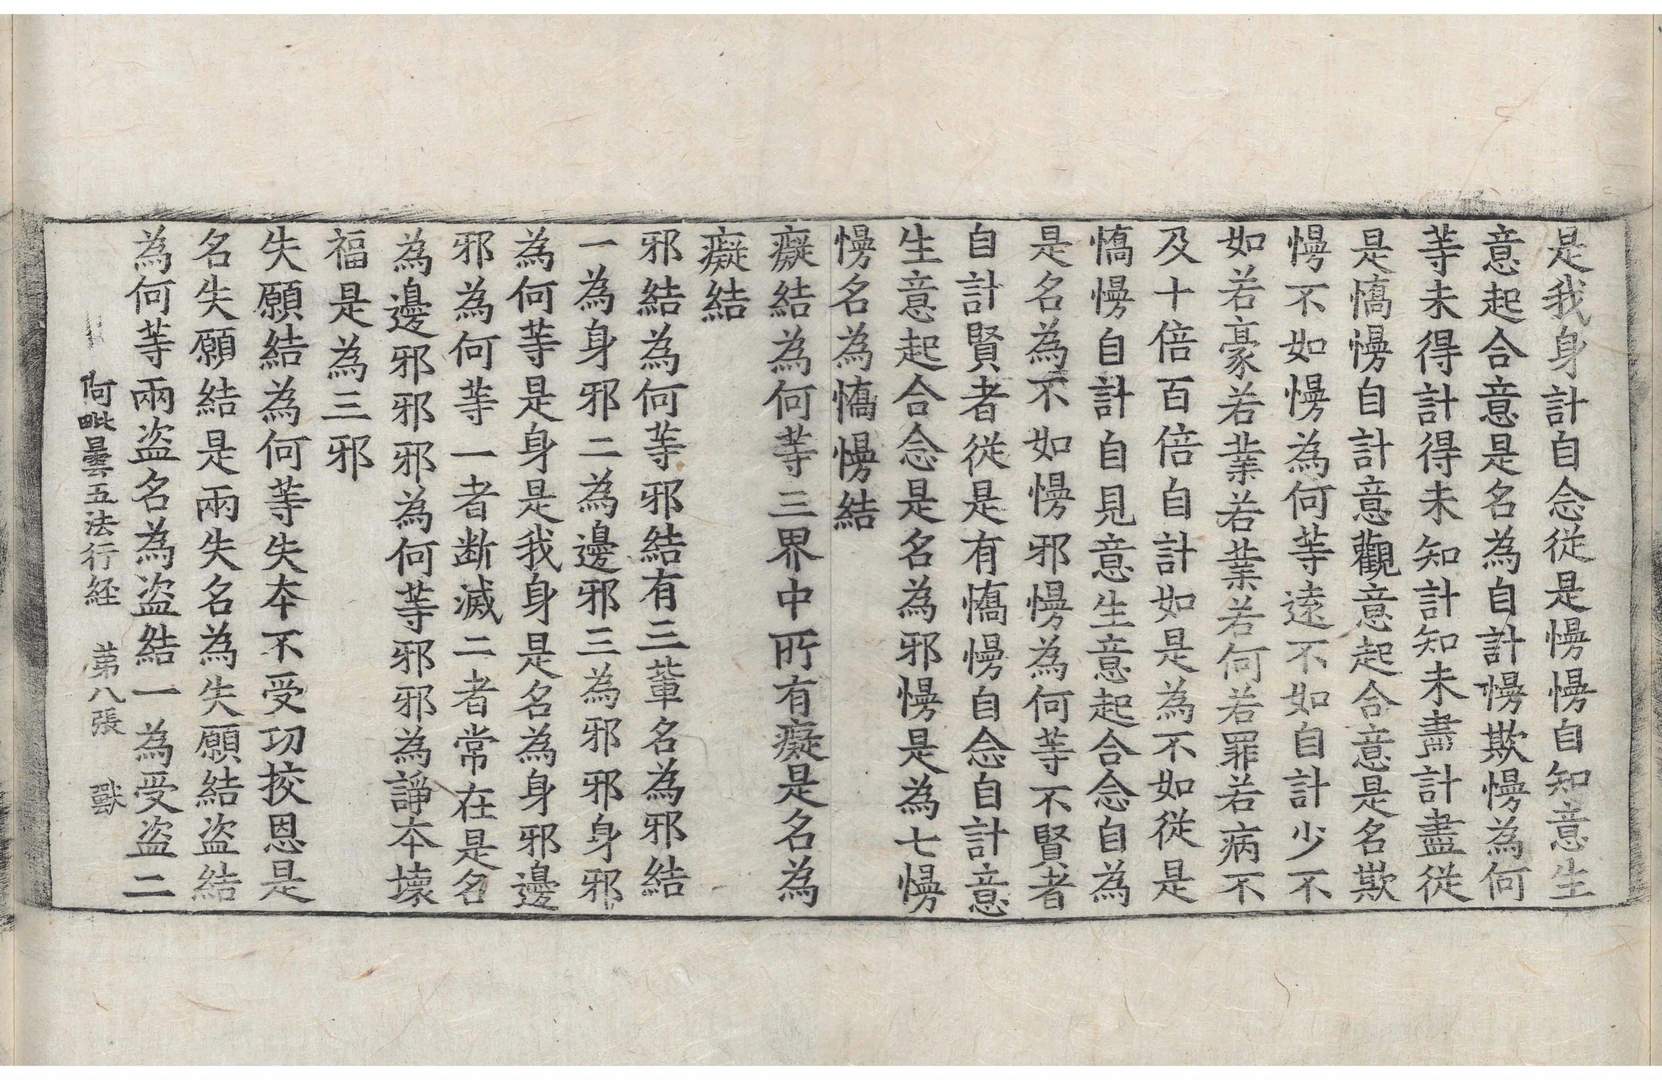 是我身計自念從是慢慢自知意生
意起合意是名為自計慢欺慢為何
等未得計得未知計知未盡計盡從
是憍慢自計意觀意起合意是名欺
慢不如慢為何等遠不如自計少不
如若豪若業若業若何若罪若病不
及十倍百倍自計如是為不如從是
憍慢自計自見意生意起合念自為
是名為不如慢邪慢為何等不賢者
自計賢者從是有憍慢自念自計意
生意起合念是名為邪慢是為七慢
慢名為憍慢結
癡結為何等三界中所有癡是名為
癡結
邪結為何等邪結有三輩名為邪結
一為身邪二為邊邪三為邪邪身邪
為何等是身是我身是名為身邪邊
邪為何等一者断滅二者常在是名
為邊邪邪邪為何等邪邪為諍本壞
福是為三邪
失願結為何等失夲不受功挍恩是
名失願結是兩失名為失願結盜結
為何等兩盜名為盜結一為受盜二
阿毗曇五法行経 第八張 獸